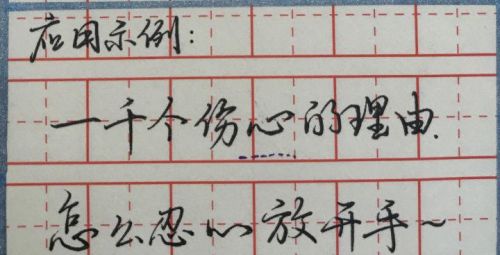 应用示例：
一千个伤心的理由.
怎么忍心放开手~